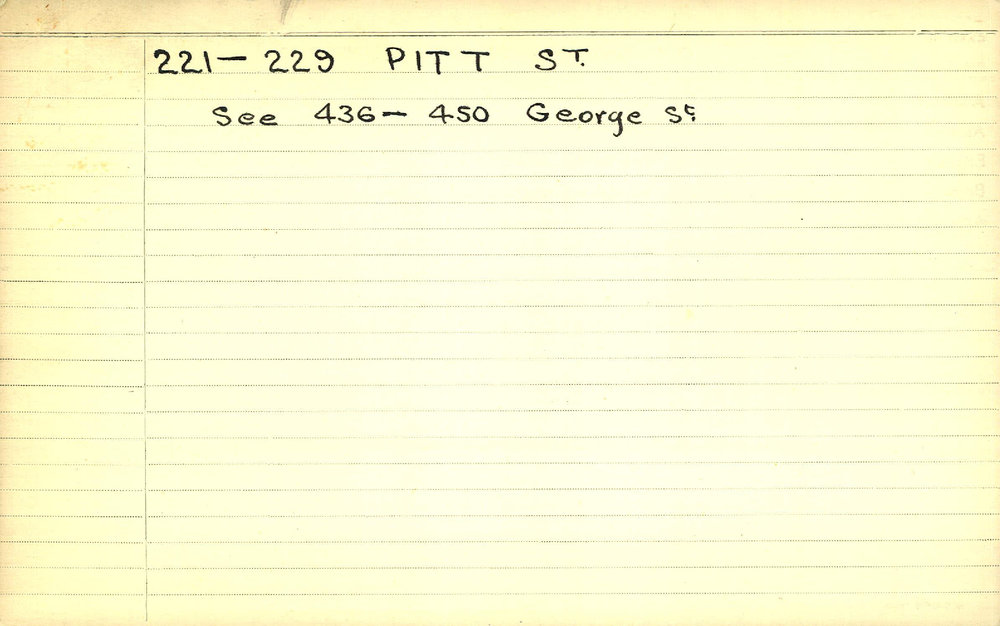 221 — 229 PITT ST.
See 436 — 450 George St.